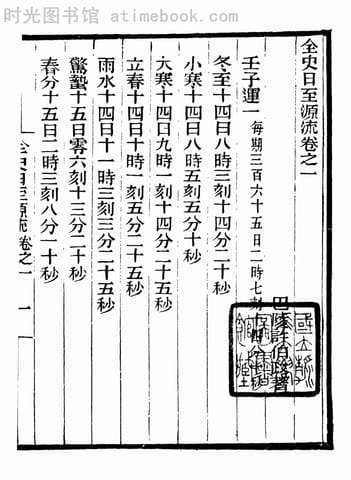 时光图书馆 - atimebook.com
全史日至源流卷之一
巴陵許伯政著
壬子運一 每期三百六十五日二時七刻
冬至十四日八時三刻四分二十秒
小寒十四日八時五刻五分十秒
大寒十四日九時一刻十四分二十五秒
立春十四日十時一刻五分二十五秒
雨水十四日十一時三刻三分二十五秒
驚蟄十五日零六刻十三分二十秒
春分十五日二時三刻八分一十秒
全史日至源流卷之一 一